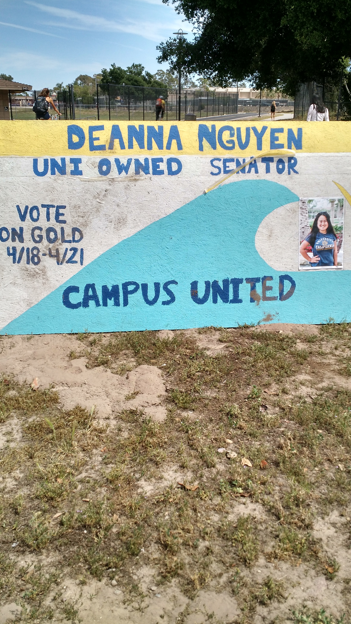 DEANNA NGUYEN
UNI OWNED SENATOR
VOTE
ON GOLD
4/18-4/21
CAMPUS UNITED